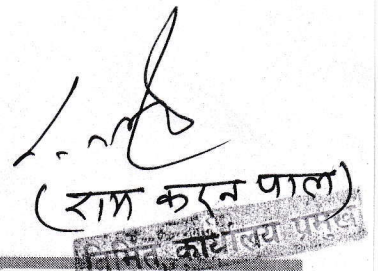 (राम करन पाल)
निमित्त, कार्यालय प्रमुख